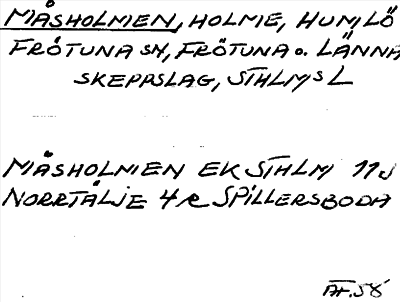 MÅSHOLMEN, HOLME, HUMLÖ
FRÖTUNA SN, FRÖTUNA O. LÄNNA
SKEPPSLAG, STHLMS L
MÅSHOLMEN EK STHLM 11J
NORRTÄLJE 4 SPILLERSBODA
AF.58